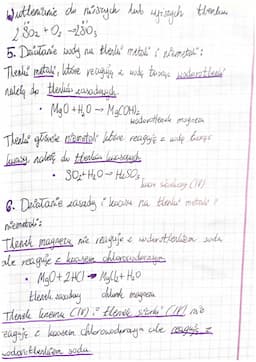 Utlenianie do niższych lub wyższych tlenków
2 SO₂ + O₂ → 2SO₃
5. Działanie wody na tlenki metali i niemetali:
Tlenki metali, które reagują z wodą tworząc wodorotlenki
należą do tlenków zasadowych.
• MgO + H₂O → Mg(OH)₂
wodorotlenek magnezu
Tlenki głównie niemetali które reagują z wodą tworząc
kwasy należą do tlenków kwasowych
• SO₂ + H₂O → H₂SO₃
kwas siarkowy (IV)
6. Działanie zasady i kwasu na tlenki metali i
niemetali:
Tlenek magnezu nie reaguje z wodorotlenkiem sodu
ale reaguje z kwasem chlorowodorowym
• MgO + 2HCl → MgCl₂ + H₂O
tlenek zasadowy chlorek magnezu
Tlenek krzemu (IV) i tlenek siarki (IV) nie
reaguje z kwasem chlorowodorowym ale reaguje z
wodorotlenkiem sodu